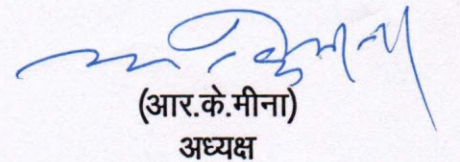 (आर.के.मीना)
अध्यक्ष